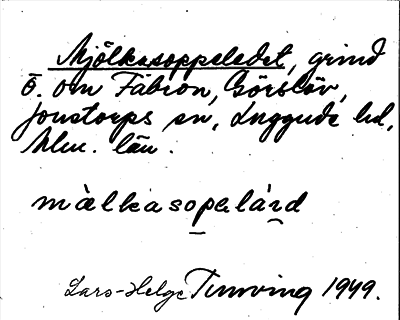 Mjölkasoppeledet, grind
ö. om Fäbron, Görslöv,
Jonstorps sn, Luggude hd,
Mlm. län.
màlkasopalárd
Lars-Helge Tunving 1949.